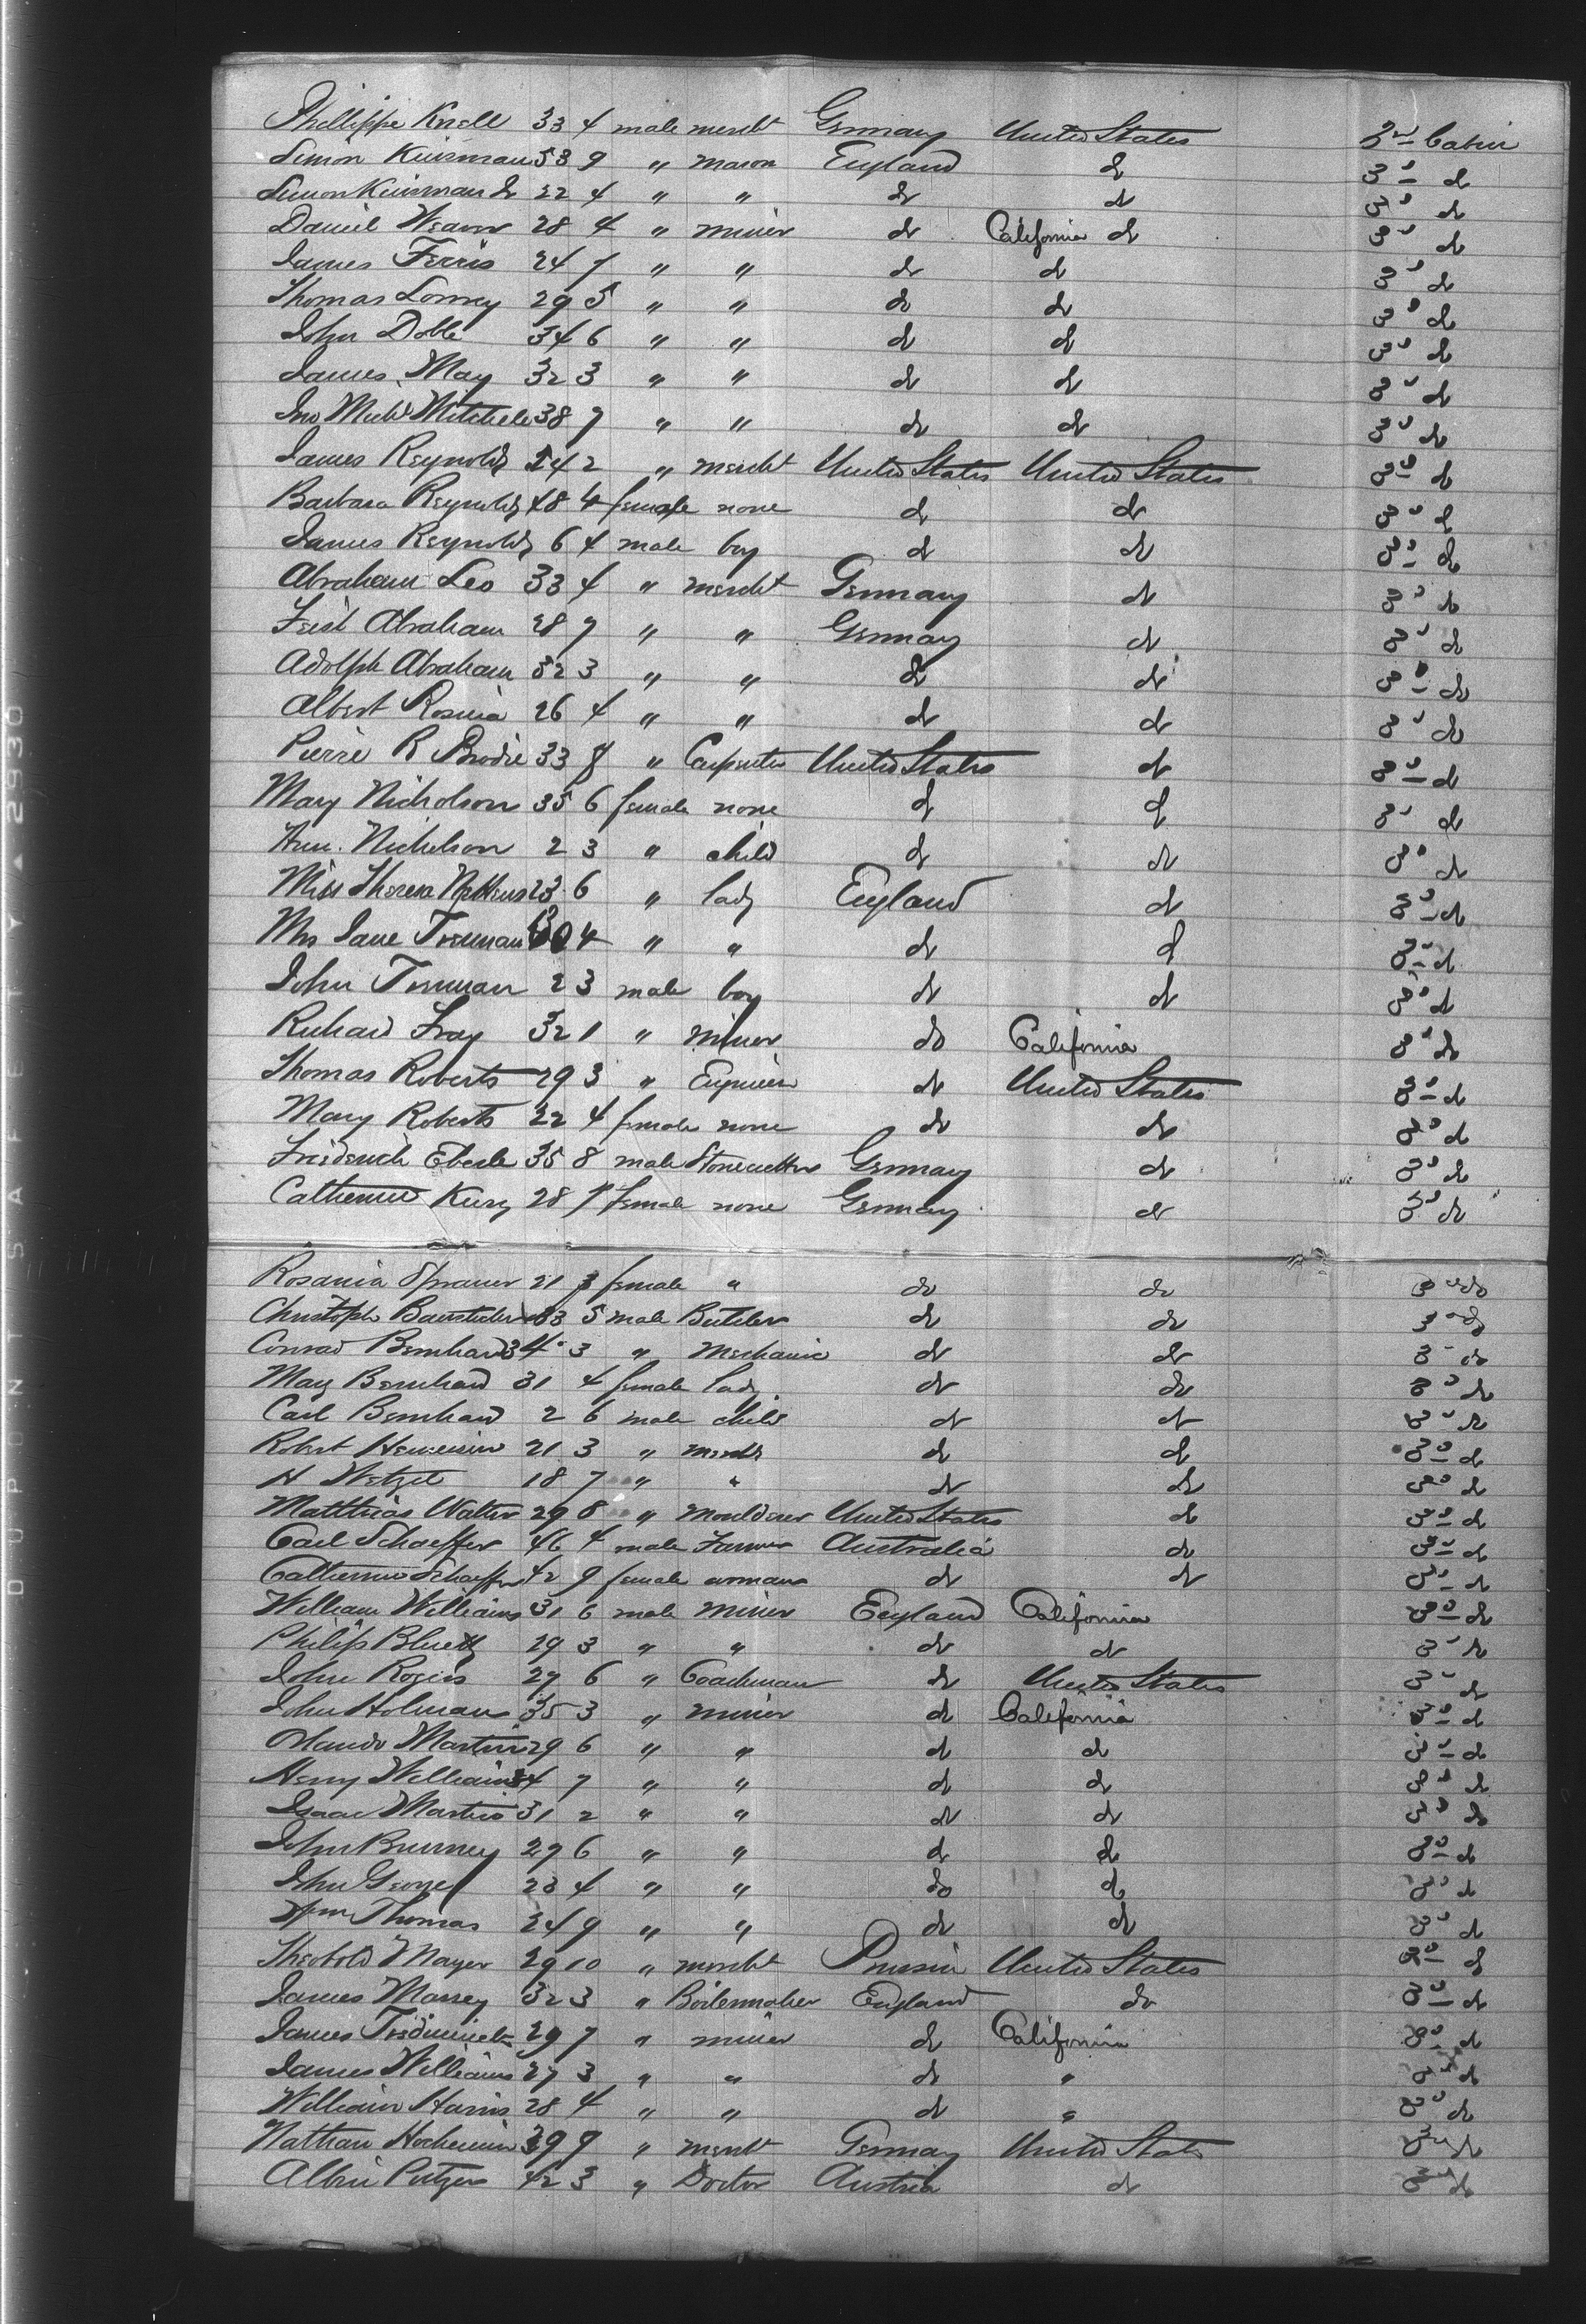 Phillippe Knell 33 4 male mercht Germany United States 2nd Cabin
Simon Kinsman 53 9 " mason England do 3d do
Simon Kinsman Jr 22 4 " " do do 3d do
Daniel Weaver 28 4 " miner do California do 3d do
James Ferris 24 7 " " do do 3d do
Thomas Lorrey 29 5 " " do do 3d do
John Doble 34 6 " " do do 3d do
James May 32 3 " " do do 3d do
Jno Michl Mitchele 38 7 " " do do 3d do
James Reynolds 54 2 " mercht United States United States 3d do
Barbara Reynolds 48 4 female none do do 3d do
James Reynolds 6 4 male boy do do 3d do
Abraham Leo 33 4 " mercht Germany do 3d do
Feist Abraham 28 7 " " Germany do 3d do
Adolph Abraham 32 3 " " do do 3d do
Albert Rosina 26 4 " " do do 3d do
Pierre R Brodie 33 8 " Carpenter United States do 3d do
Mary Nicholson 35 6 female none do do 3d do
Ann Nicholson 2 3 " child do do 3d do
Miss Theresa 23 6 " lady England do 3d do
Mrs Jane Treman 30 4 " " do do 3d do
John Treman 2 3 male boy do do 3d do
Richard Fray 32 1 " miner do California 3d do
Thomas Roberts 29 3 " Engineer do United States 3d do
Mary Roberts 22 4 female none do do 3d do
Friederich Eberle 35 8 male Stonecutter Germany do 3d do
Catherine Kurz 28 7 female none Germany do 3d do
Rosania Sprauer 21 3 female " do do 3d do
Christoph 33 5 male Butcher do do 3d do
Conrad Bernhard 34 3 " Mechanic do do 3d do
Mary Bernhard 31 4 female lady do do 3d do
Carl Bernhard 2 6 male child do do 3d do
Robert 21 3 " mercht do do 3d do
H Wetzel 18 7 " " do do 3d do
Matthias Walter 29 8 " moulderer United States do 3d do
Carl Schaeffer 46 4 male Farmer Australia do 3d do
Catherine Schaeffer 42 9 female woman do do 3d do
William Williams 31 6 male miner England California 3d do
Philip Bluett 29 3 " " do do 3d do
John Rogers 27 6 " Coachman do United States 3d do
John Holman 35 3 " miner do California 3d do
Orlando Martin 29 6 " " do do 3d do
Henry Williams 34 7 " " do do 3d do
Isaac Martin 31 2 " " do do 3d do
John Burney 27 6 " " do do 3d do
John George 23 4 " " do do 3d do
Wm Thomas 24 9 " " do do 3d do
Theobold Mayer 29 10 " mercht Prussia United States 3d do
James Massey 32 3 " Boilermaker England do 3d do
James Tredinnick 29 7 " miner do California 3d do
James Williams 27 3 " " do " 3d do
William Harris 28 4 " " do " 3d do
Nathan 39 9 " mercht Germany United States 3d do
Albin Putzer 42 3 " Doctor Austria do 3d do
DUPONT SAFETY 2930